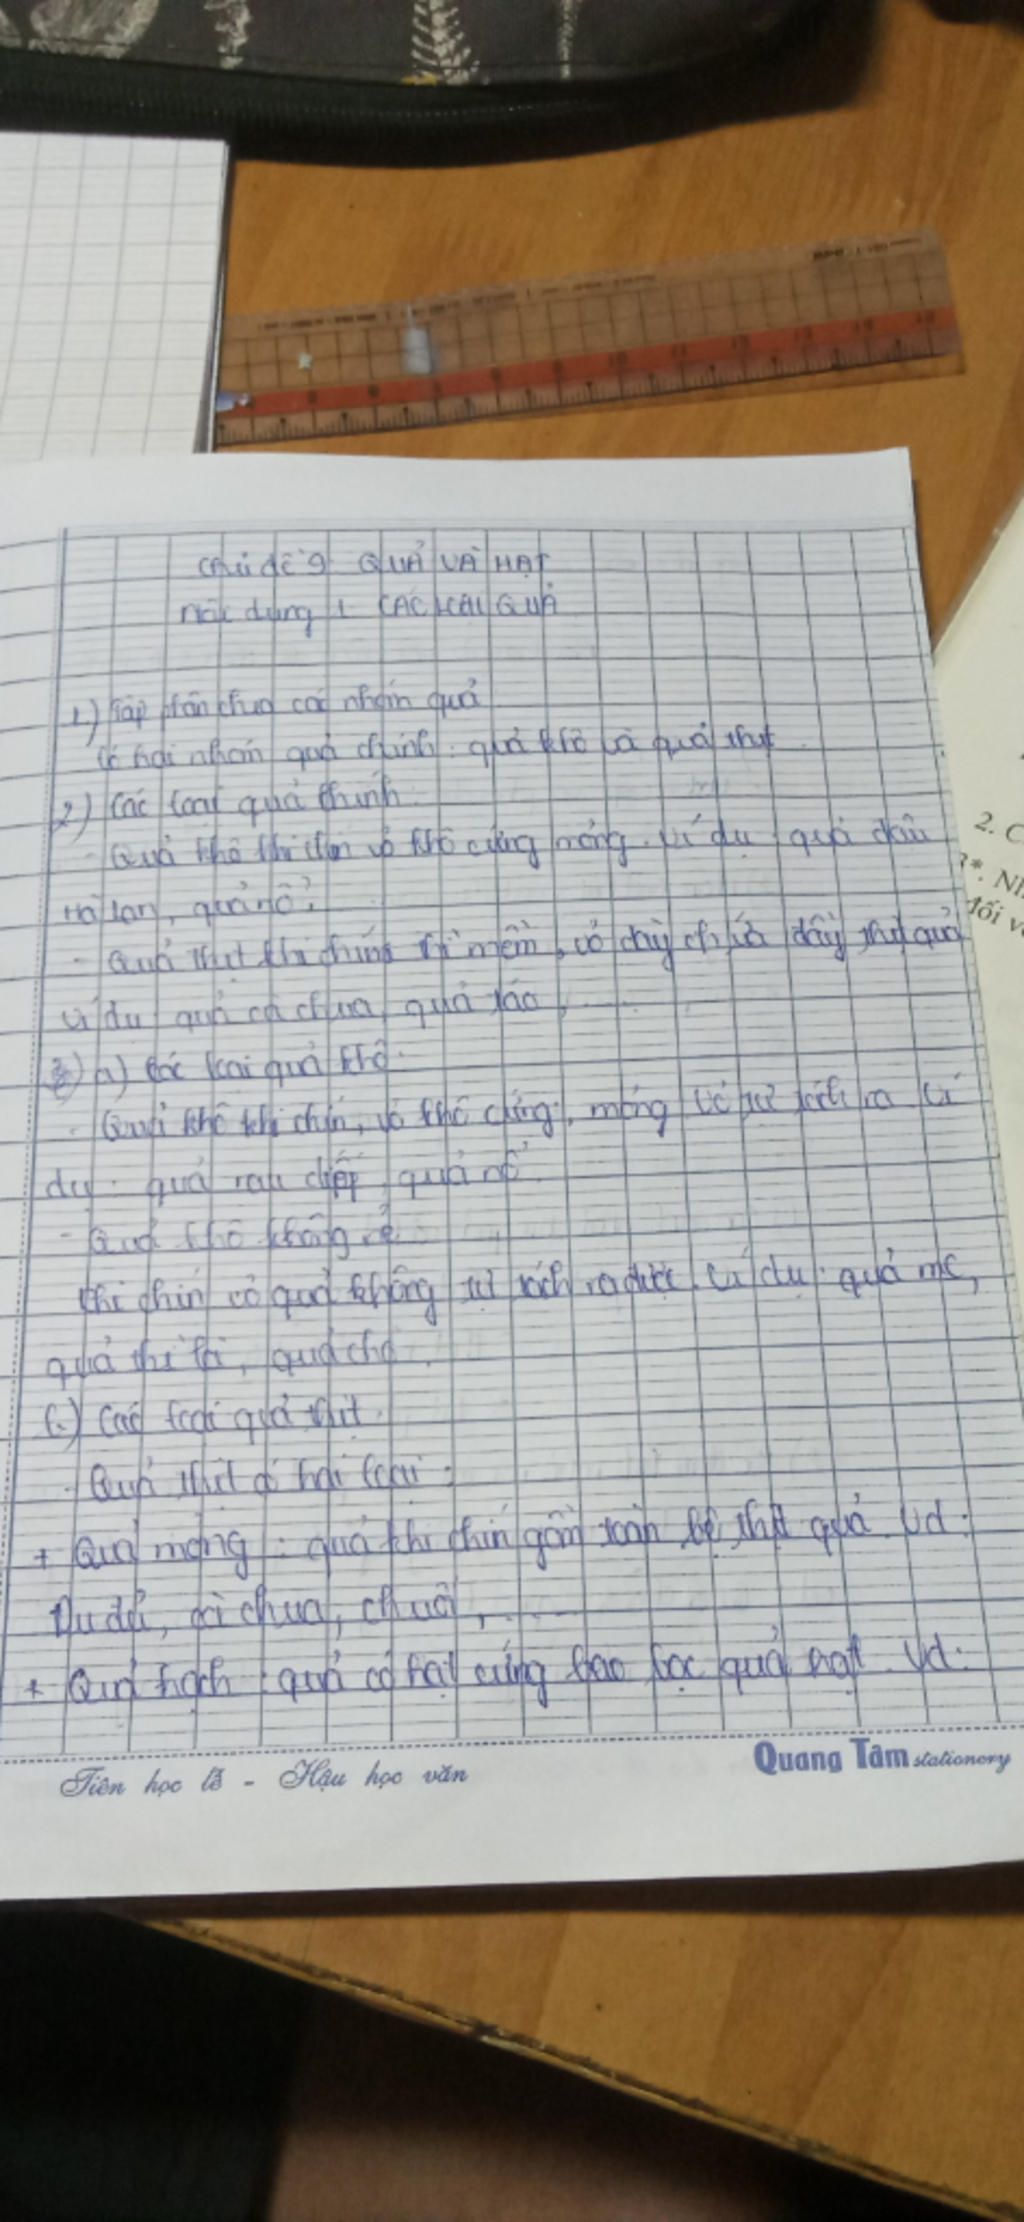 Chủ đề 9 QUẢ VÀ HẠT
Nội dung 1 CÁC LOẠI QUẢ
1) Tập phân chia các nhóm quả
Có hai nhóm quả chính: quả khô và quả thịt
2) Các loại quả chính
- Quả khô khi chín vỏ khô cứng mỏng. Ví dụ quả đậu
Hà lan, quả nổ.
- Quả thịt khi chín thì mềm, vỏ dày chứa đầy thịt quả
ví dụ quả cà chua, quả táo
a) Các loại quả khô
- Quả khô khi chín, vỏ khô cứng, mỏng vỏ tự tách ra ví
dụ: quả rau diếp, quả nổ
- Quả khô không nẻ
khi chín vỏ quả không tự tách ra được. Ví dụ: quả me,
quả thì là, quả chò
Các loại quả thịt
- Quả thịt có hai loại:
+ Quả mọng: quả khi chín gồm toàn bộ thịt quả. Vd:
Đu đủ, cà chua, chuối,
+ Quả hạch: quả có hạt cứng bao bọc quả hạt. Vd:
Tiên học lễ - Hậu học văn
Quang Tâm stationery
2. C
3*. Nh
đối v